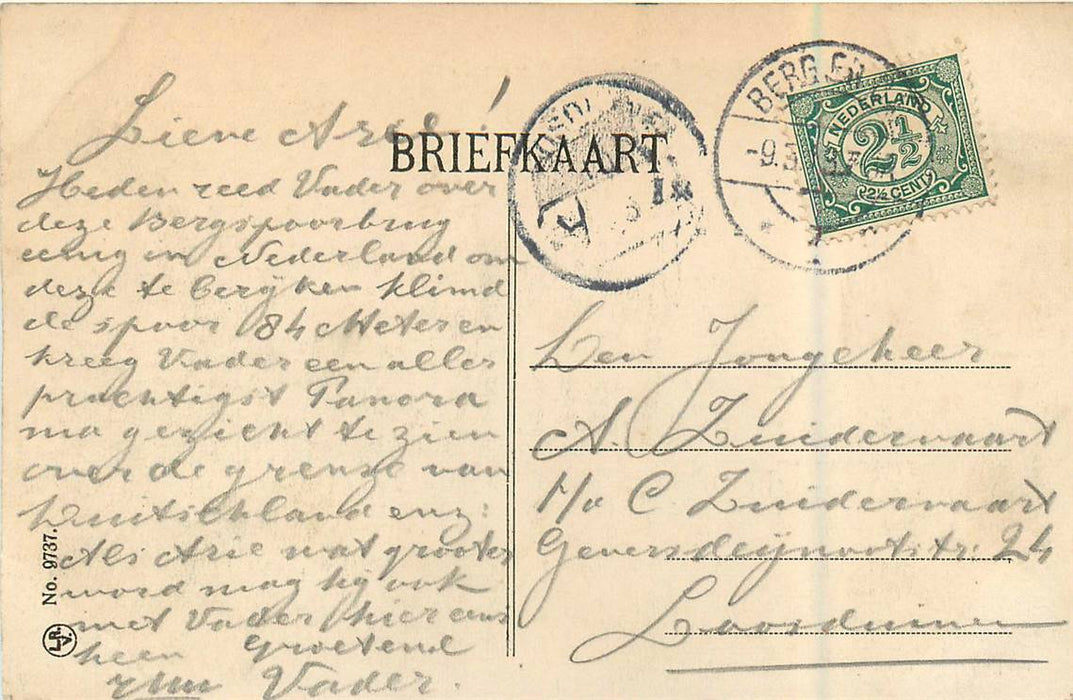 Lieve Arie!
Heden reed Vader over
deze Bergspoorbrug
eenig in Nederland om
deze te berijken klimd
de spoor 84 Meter en
kreeg Vader een aller
prachtigst Panora
ma gezicht te zien
over de grense van
Duitschland enz:
Als Arie wat grooter
word mag hij ook
met Vader hier eens
heen Groetend
Vader.
BRIEFKAART
BERG EN
-9.3
NEDERLAND
2½
2½ CENT
Den Jongeheer
A. Zuidervaart
p/a C. Zuidervaart
Geversdeijnootstr. 24
Loosduinen
No. 9737.
L.R.
V.